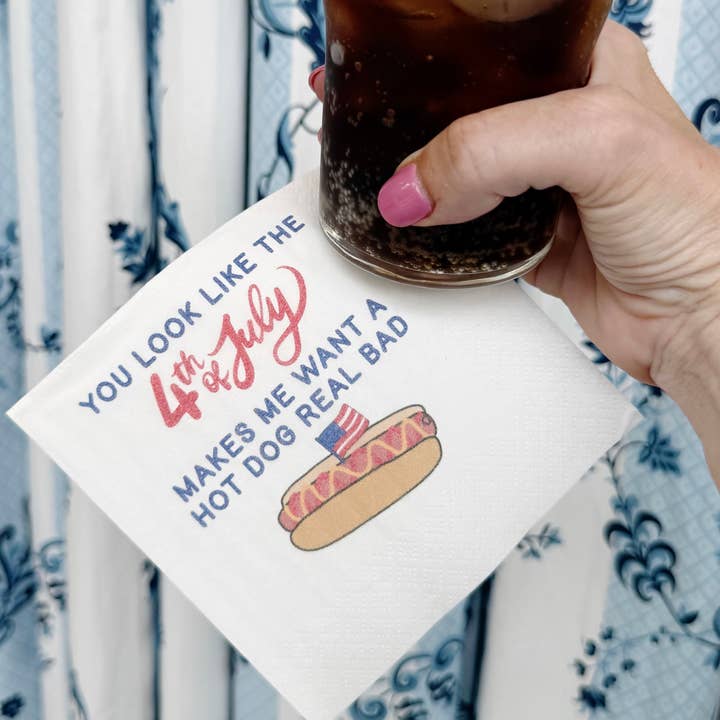 YOU LOOK LIKE THE
4th of July
MAKES ME WANT A
HOT DOG REAL BAD